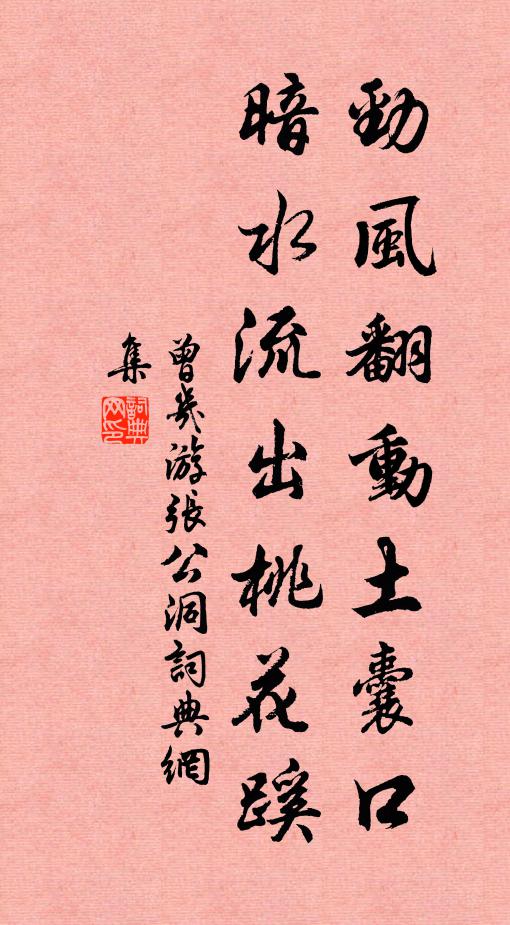 勁風翻動土囊口
暗水流出桃花蹊
曾幾游張公洞詞典網
集
詞典
網印